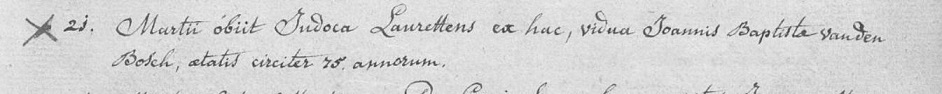 21. Martii obiit Judoca Laurettens ex hac, vidua Joannis Baptistæ vanden
Bosch, ætatis circiter 75. annorum.